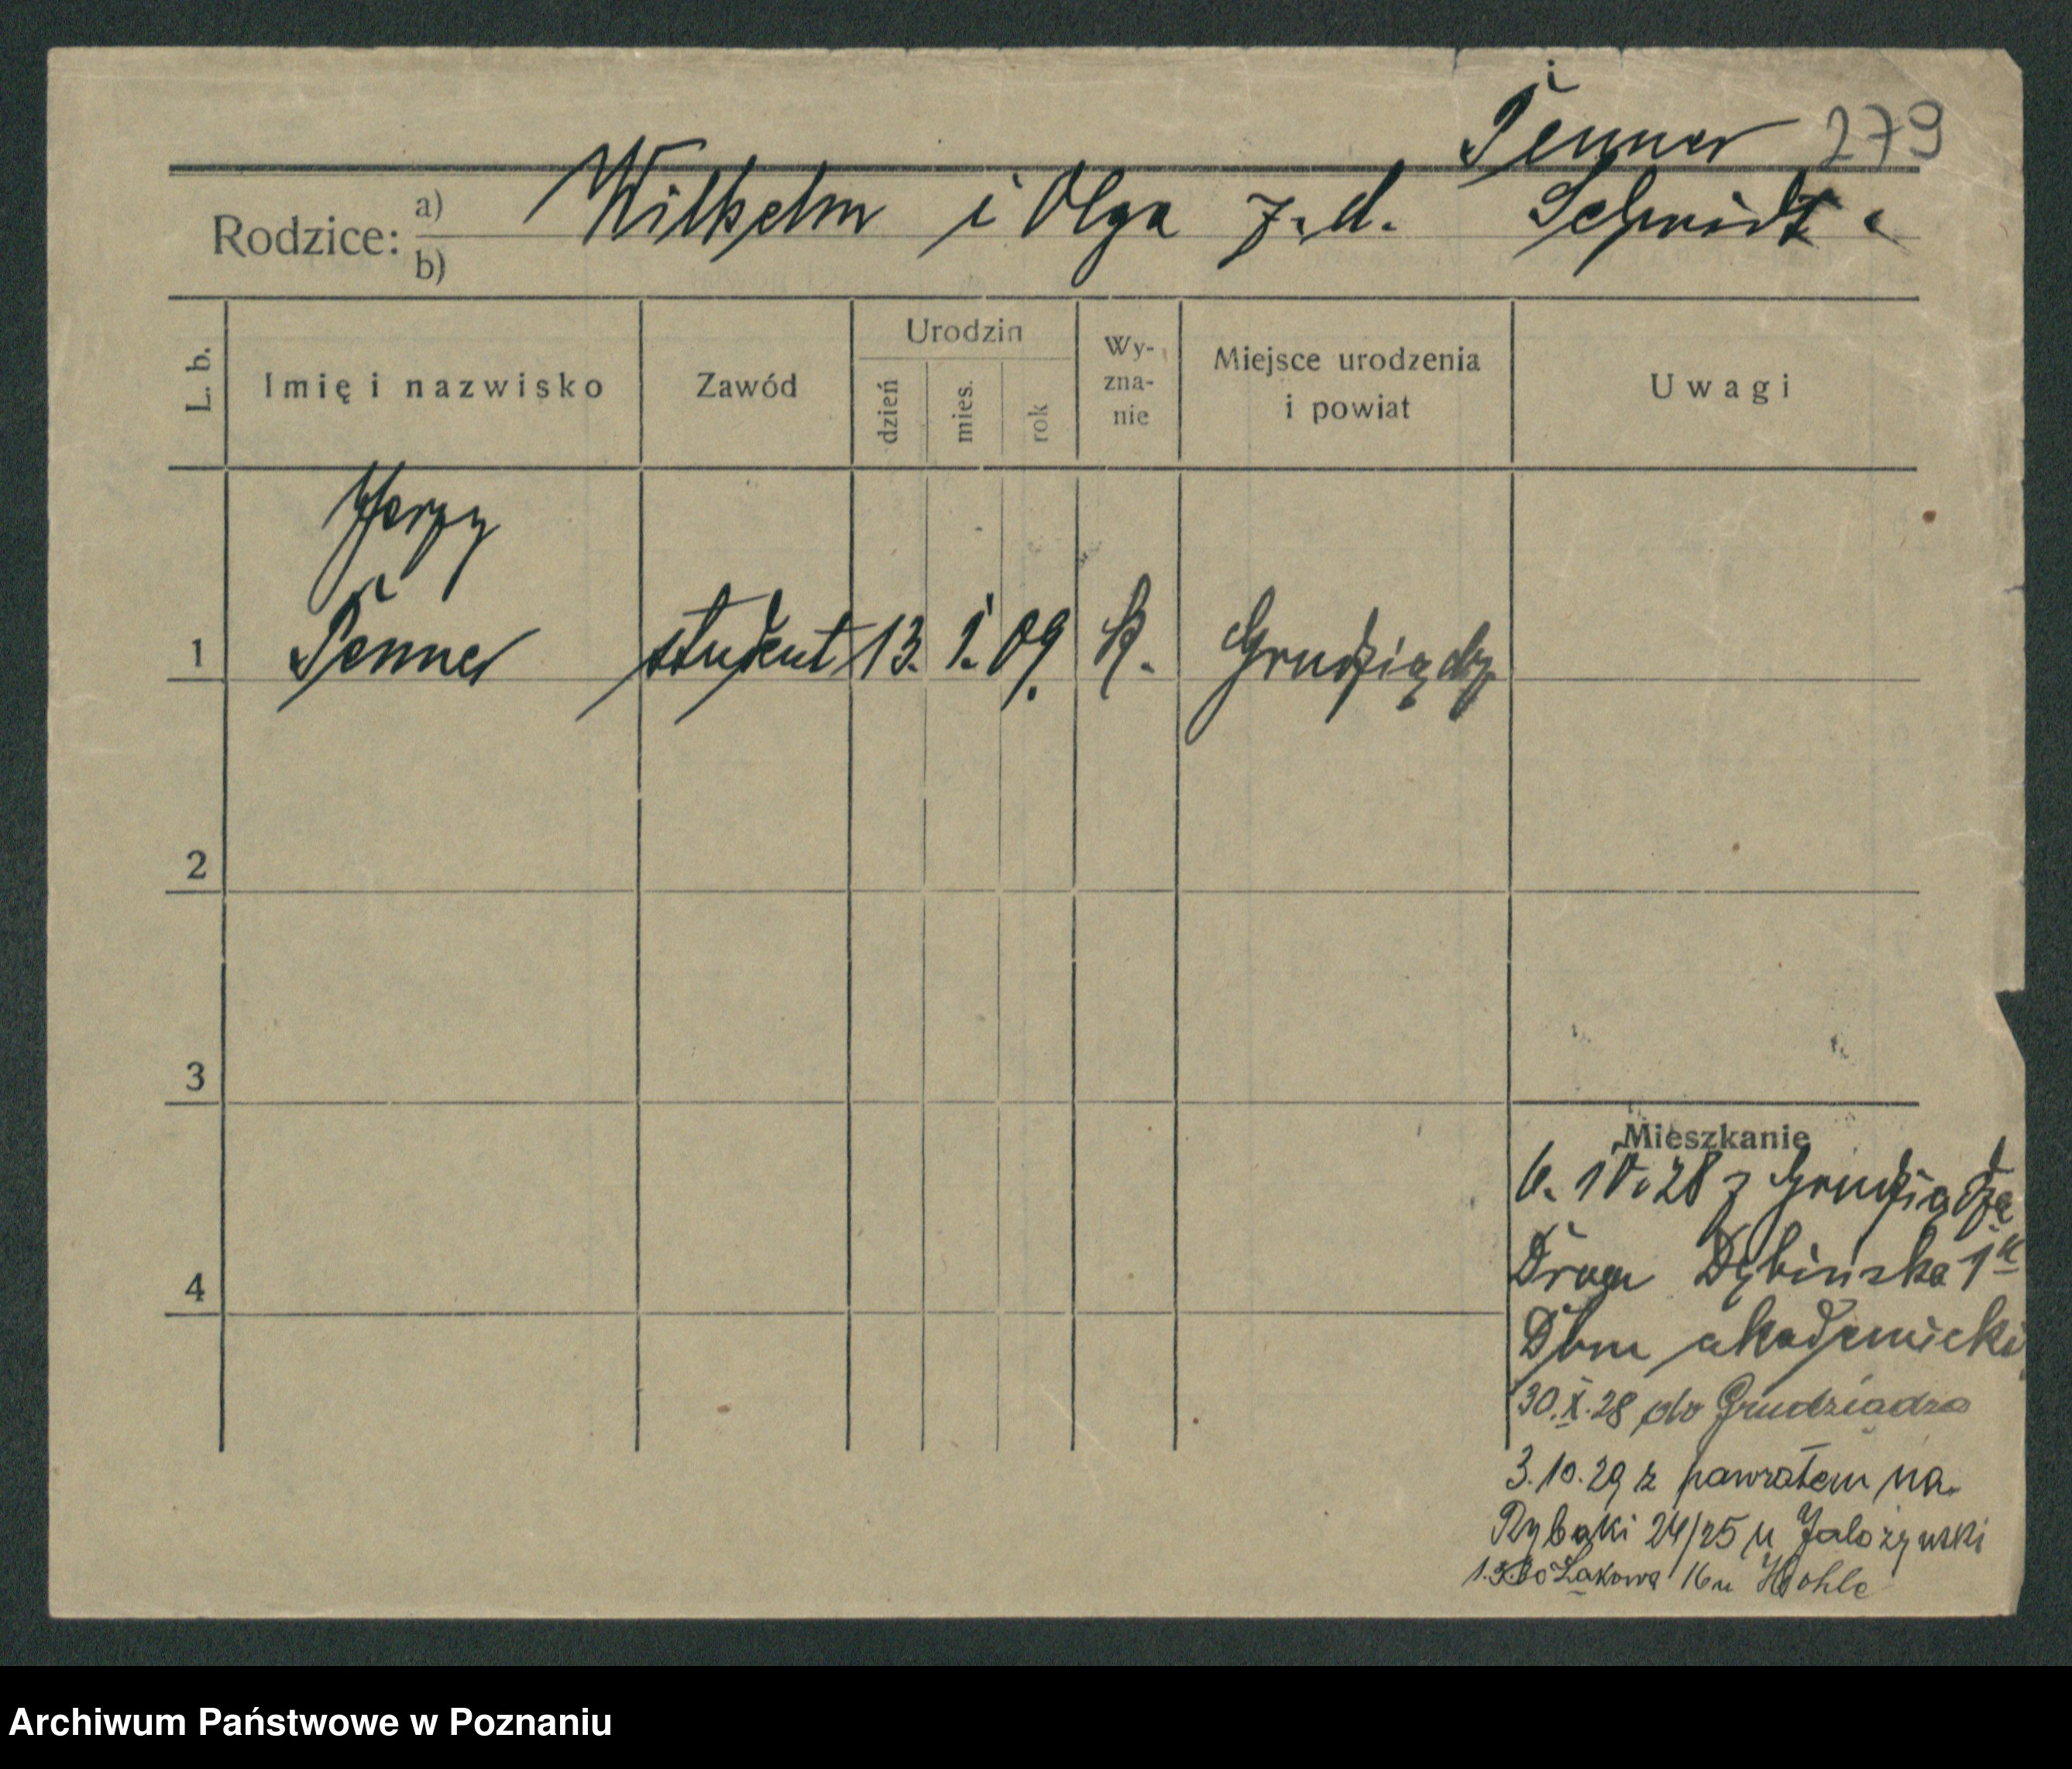 Penner 279
Rodzice: a) Wilhelm i Olga z. d. Schmidt
b)
L. b. Imię i nazwisko Zawód Urodzin dzień mies. rok Wy-zna-nie Miejsce urodzenia i powiat Uwagi
Jerzy
1 Penner student 13. 1. 09. K. Grudziądz
2
3
Mieszkanie
6. 10. 28 z Grudziądza
4 Droga Dębińska 1
Dom akademicki
30.X.28 do Grudziądza
3.10.29 z pawrotem na
Rybaki 24/25 u
Łąkowa 16 u
Archiwum Państwowe w Poznaniu